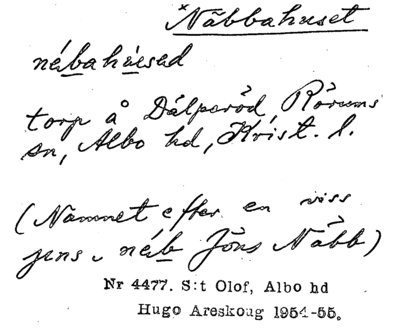 *Näbbahuset
nébahúesed
torp å Dálperöd, Rörums
sn, Albo hd, Krist. l.
(Namnet efter en viss
jens, néb Jöns Näbb)
Nr 4477. S:t Olof, Albo hd
Hugo Areskoug 1954-55.